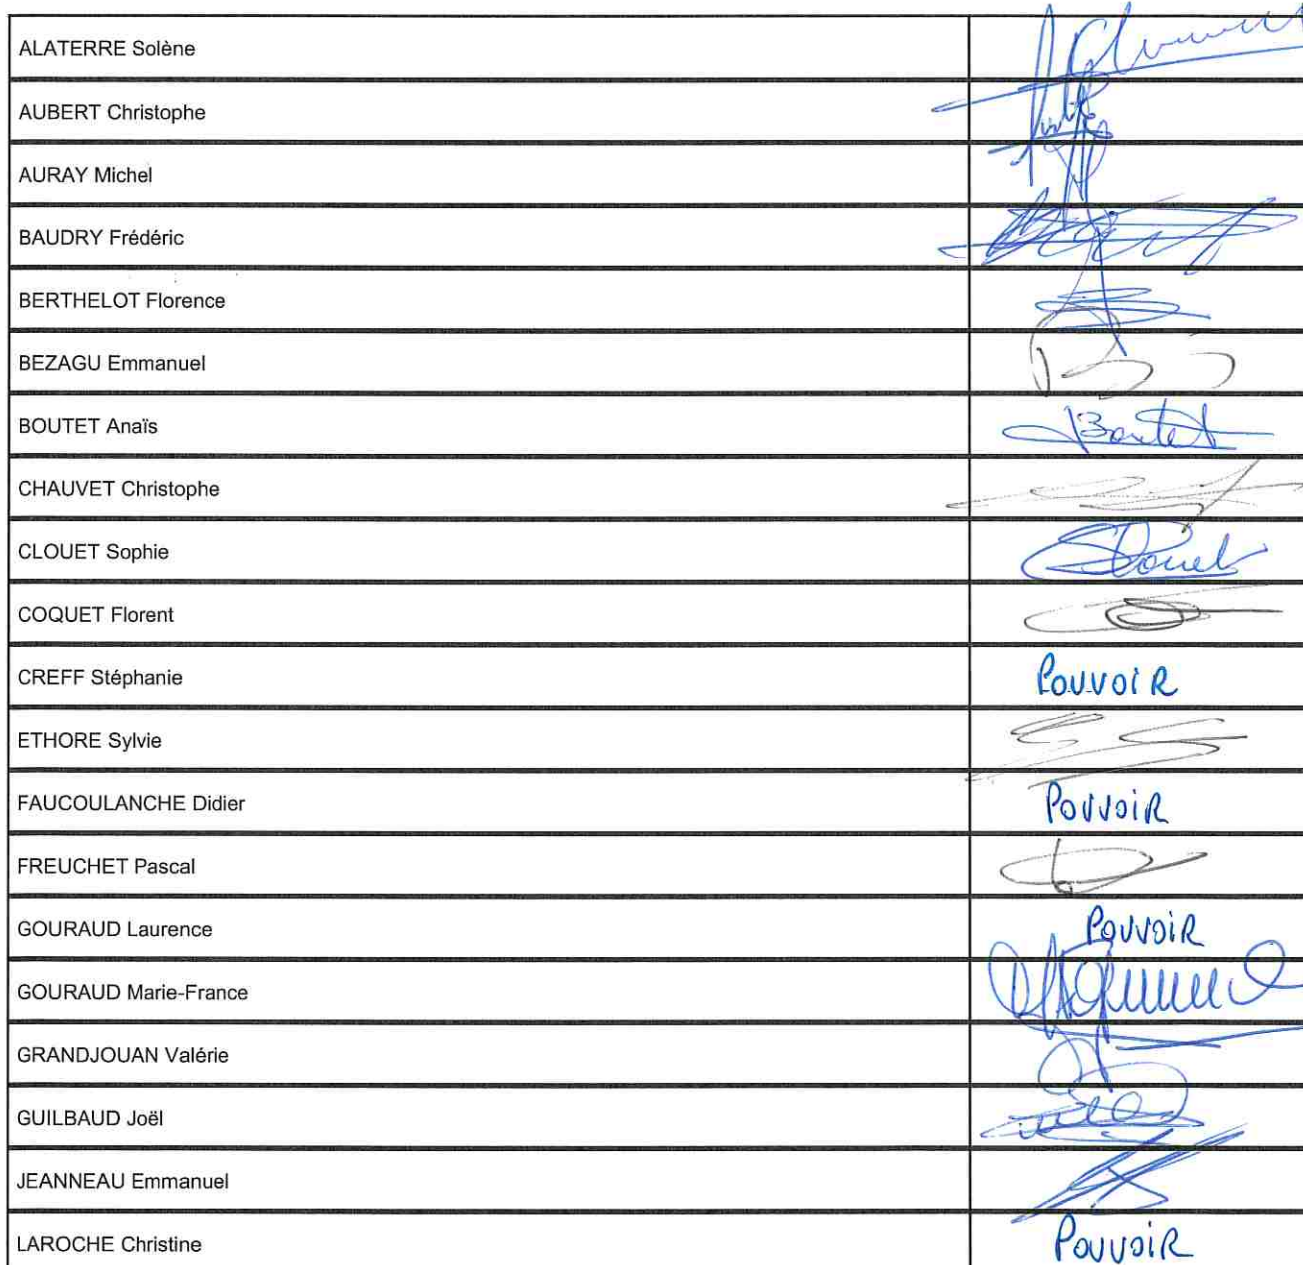 ALATERRE Solène
AUBERT Christophe
AURAY Michel
BAUDRY Frédéric
BERTHELOT Florence
BEZAGU Emmanuel
BOUTET Anaïs Boutet
CHAUVET Christophe
CLOUET Sophie SClouet
COQUET Florent
CREFF Stéphanie Pouvoir
ETHORE Sylvie
FAUCOULANCHE Didier Pouvoir
FREUCHET Pascal
GOURAUD Laurence Pouvoir
GOURAUD Marie-France
GRANDJOUAN Valérie
GUILBAUD Joël
JEANNEAU Emmanuel
LAROCHE Christine Pouvoir